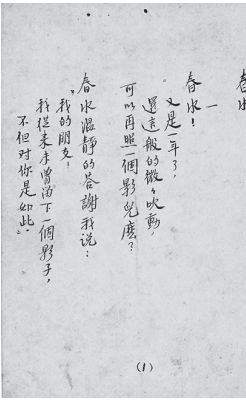 春水
一
春水！
又是一年了，
還這一般的微々吹動，
可以再照一個影兒麼？
春水温静的答謝我说：
“我的朋友，
我從来未曾留下一個影子，
不但对你是如此”。
(1)